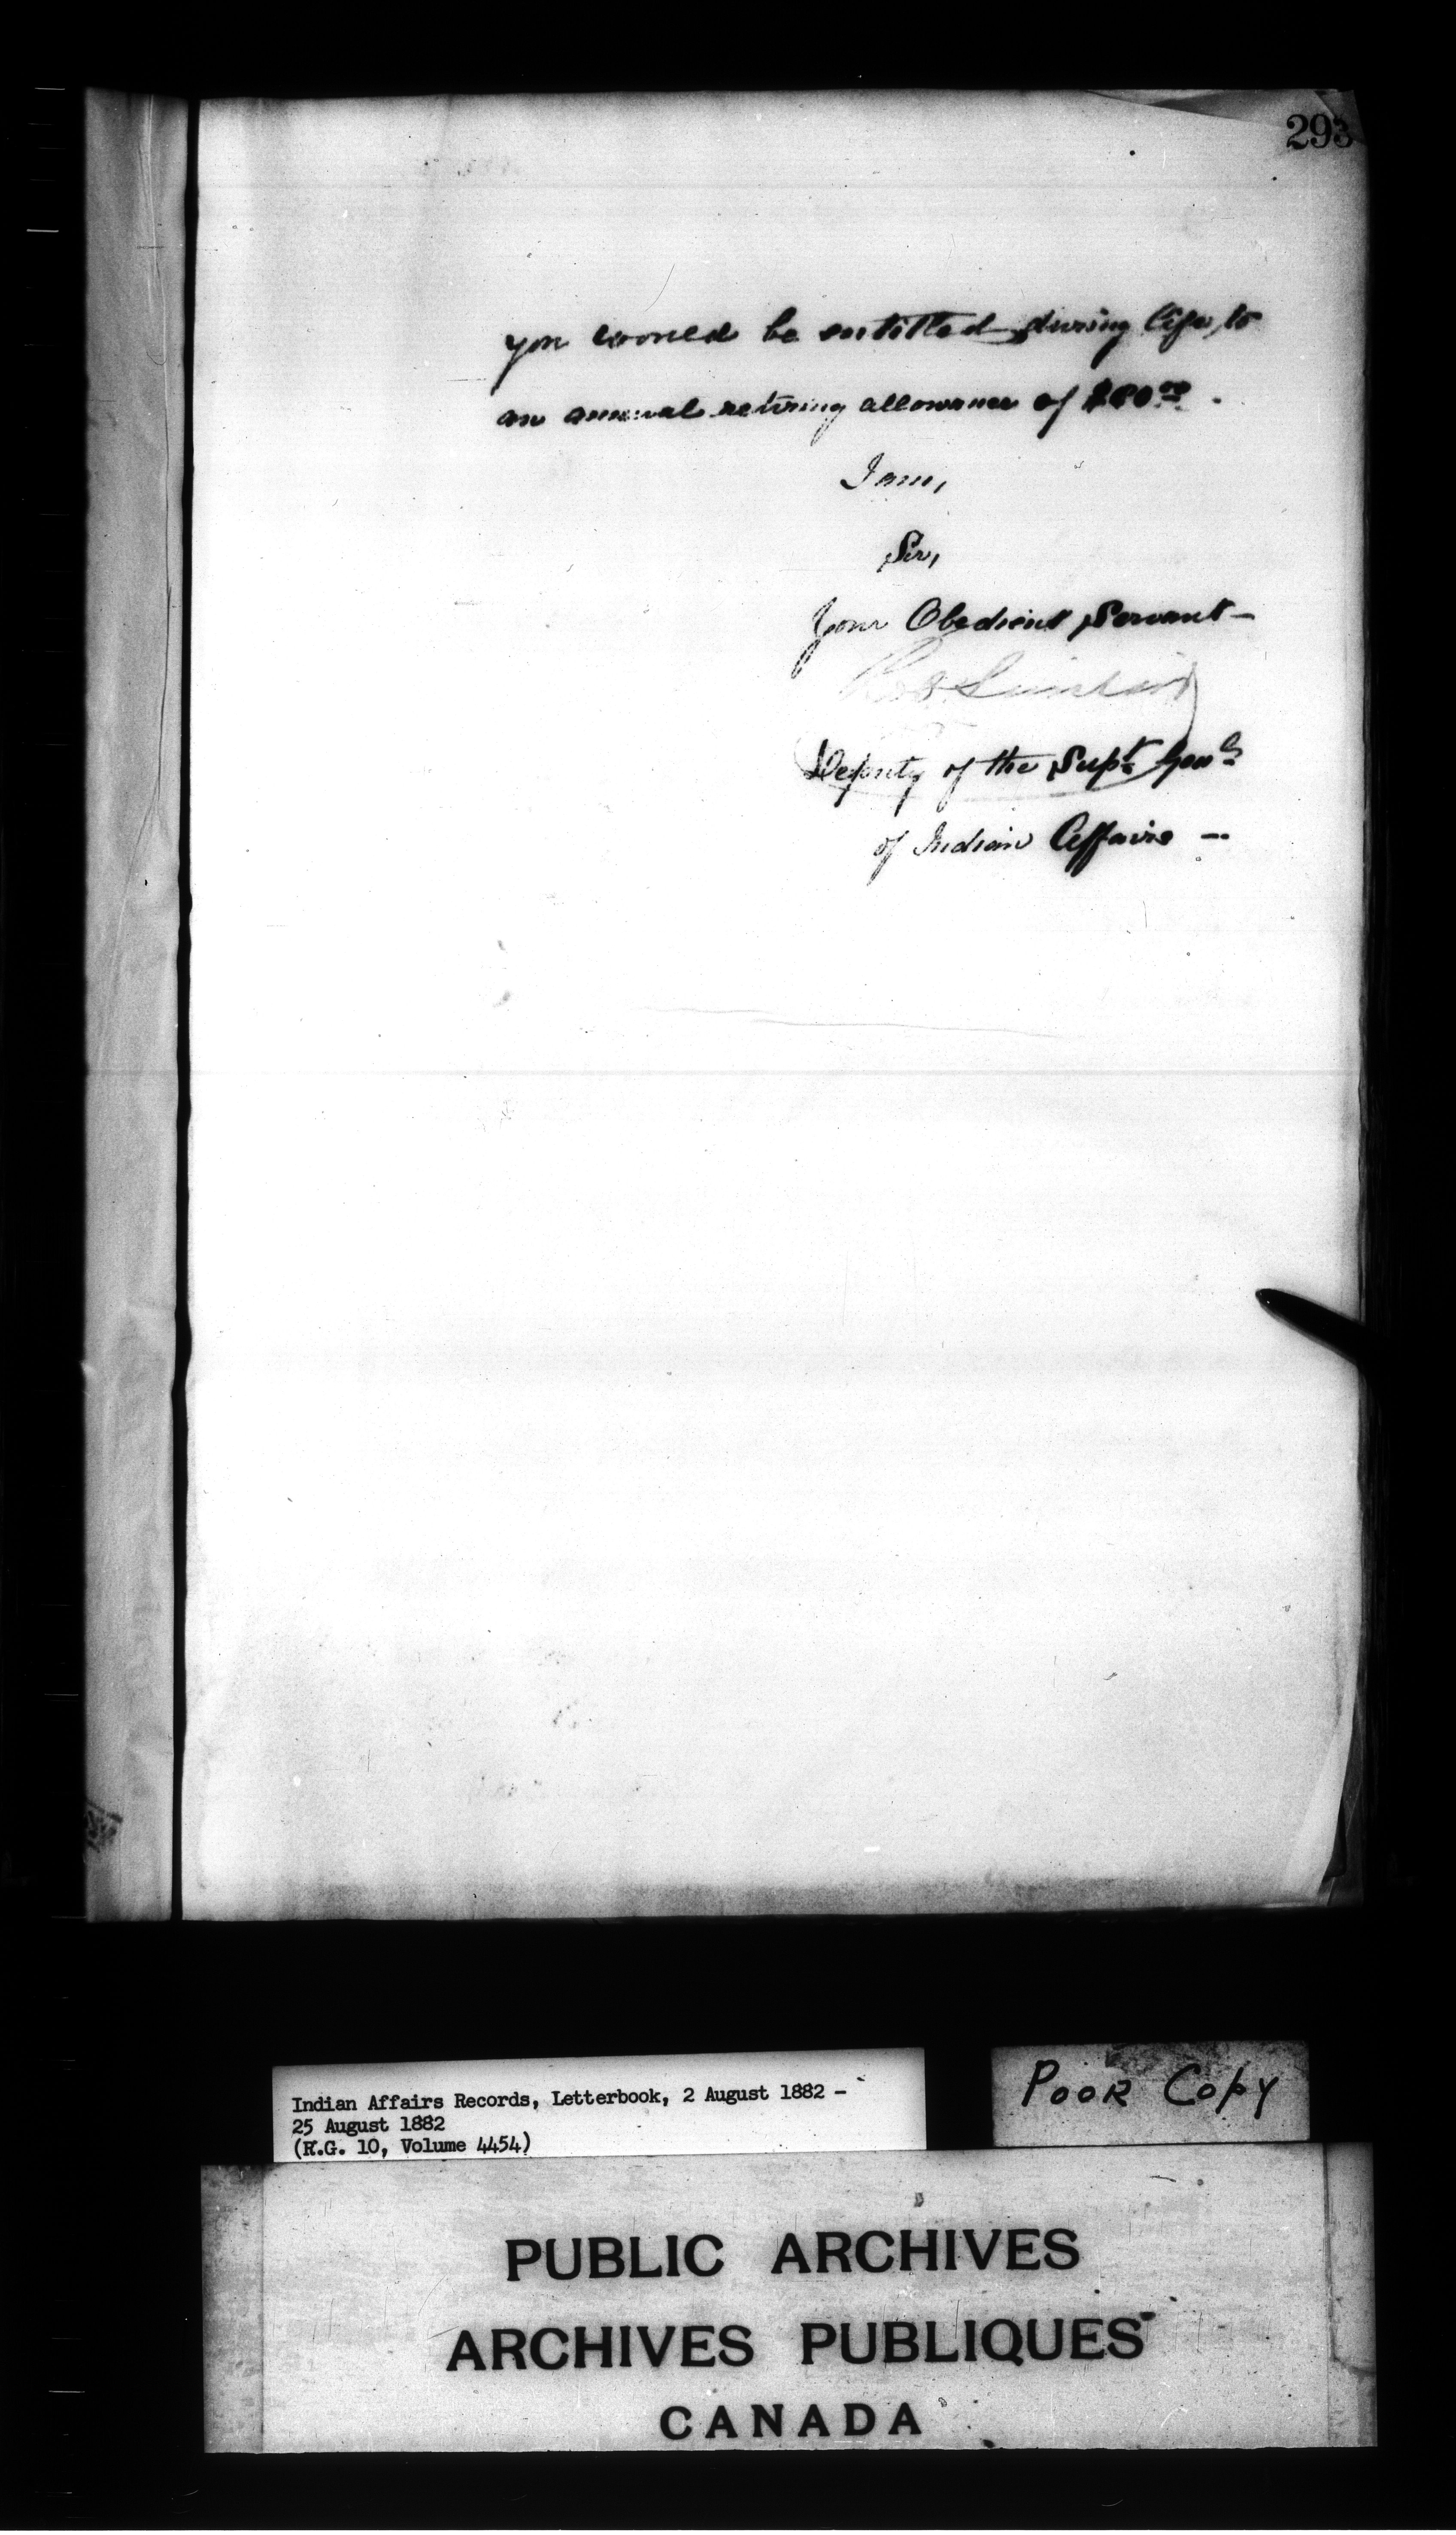 293
you would be entitled during life, to
an annual retiring allowance of $80.00.
I am,
Sir,
Your Obedient Servant—
Deputy of the Supt. Genl.
of Indian Affairs —
Indian Affairs Records, Letterbook, 2 August 1882 -
25 August 1882
(R.G. 10, Volume 4454)
POOR COPY
PUBLIC ARCHIVES
ARCHIVES PUBLIQUES
CANADA